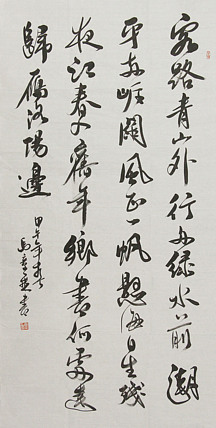 客路青山外行舟绿水前潮
平兩岸闊風正一帆懸海日生殘
夜江春入舊年鄉書何處達
歸雁洛陽邊
甲午年春